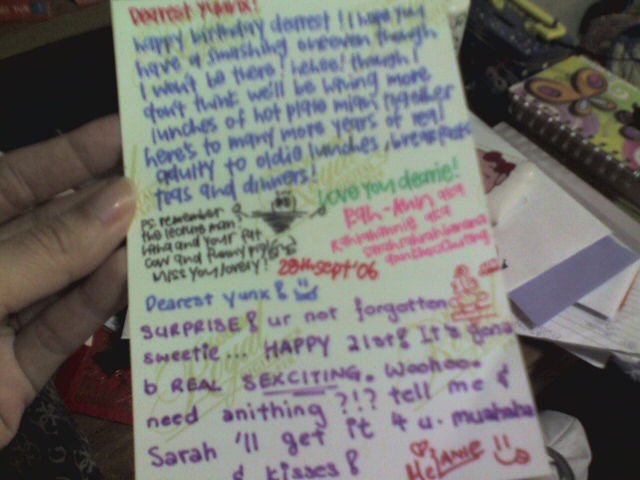 Dearest Yunx!
happy birthday dearest! I hope you
have a smashing one even though
I won't be there! hehee! though I
don't think we'll be having more
lunches of hot plate mian together
here's to many more years of
to oldie lunches, breakfasts
teas and dinners!
Love you dearie!
Ps. remember
the lecture man!
and your fat
cow and funny pig!
Miss you lovely!
28th sept '06
Dearest Yunx!
SURPRISE! ur not forgotten
sweetie... HAPPY 21st! It's gona
b REAL SEXCITING. Woohoo.
need anithing?!? tell me &
Sarah 'll get it 4 u. muahaha
& kisses!
Melanie